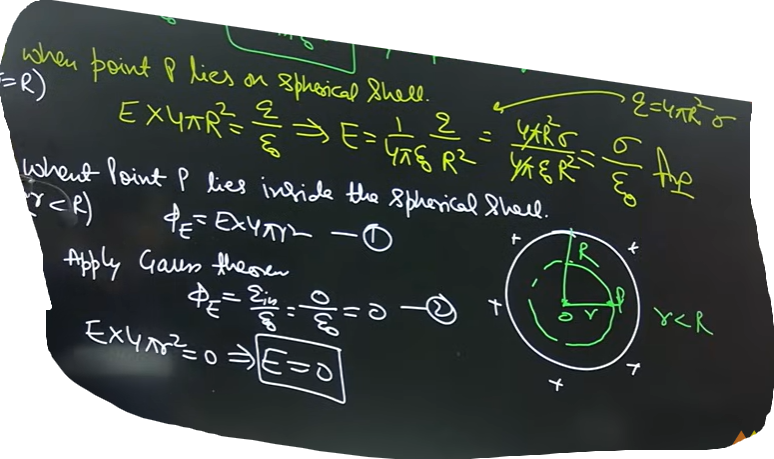 when point P lies on spherical shell.
=R)
q=4πR²σ
E×4πR²=q/ε₀ ⇒ E=1/4πε₀ q/R² = 4πR²σ/4πε₀R² = σ/ε₀ Ans
whent Point P lies inside the spherical shell.
(r<R)
ϕE=E×4πr² —①
Apply Gauss theorem
ϕE=qin/ε₀=0/ε₀=0 —②
E×4πr²=0 ⇒ E=0
+ +
R
+ P
O r
r<R
+ +